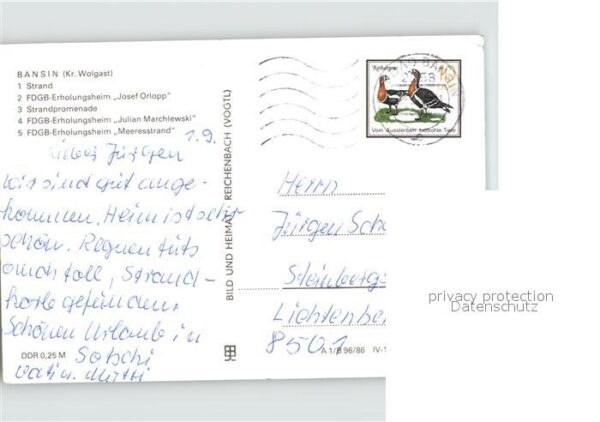 BANSIN (Kr. Wolgast)
1 Strand
2 FDGB-Erholungsheim „Josef Orlopp"
3 Strandpromenade
4 FDGB-Erholungsheim „Julian Marchlewski"
5 FDGB-Erholungsheim „Meeresstrand"
1.9.
Lieber Jürgen
wir sind gut ange-
kommen. Heim ist sehr
schön. Regnen tuts
auch toll, Strand-
korb gefunden.
Schönen Urlaub in
Sotschi
Mutti
DDR 0,25 M
BILD UND HEIMAT REICHENBACH (VOGTL)
A 1/B 96/86 IV-1
Vom Aussterben bedrohte Tiere
BANSIN
Herrn
Jürgen Sch
Steinberg
Lichtenber
8501
privacy protection
Datenschutz